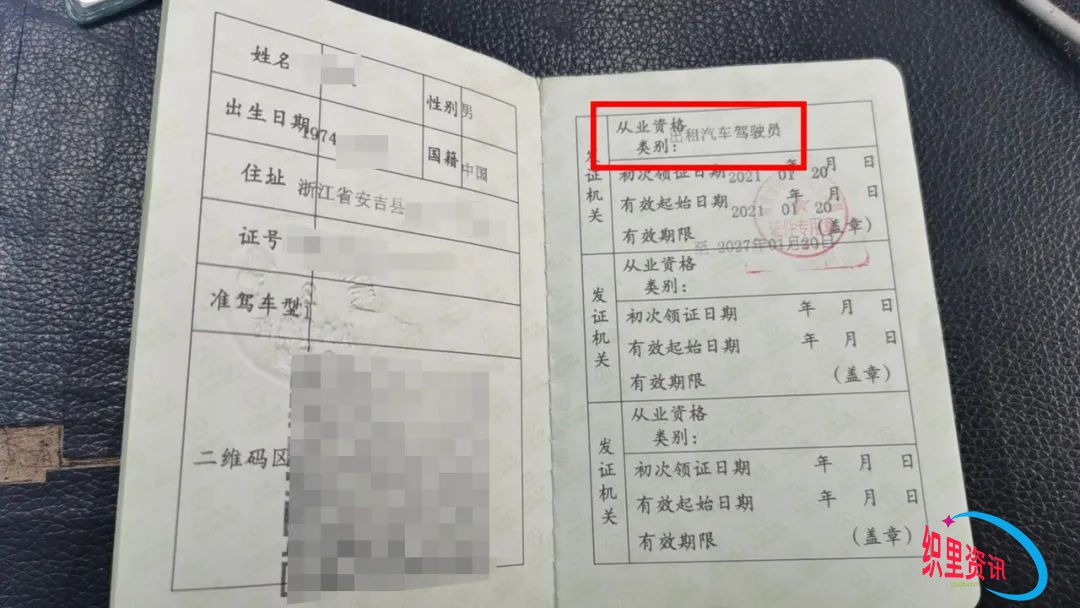 姓名
性别 男
出生日期 1974
国籍 中国
住址 浙江省安吉县
证号
准驾车型
二维码区
发证机关
从业资格类别: 出租汽车驾驶员
初次领证日期 2021 年 01 月 20 日
有效起始日期 2021 年 01 月 20 日
有效期限 至 2027年01月20日 (盖章)
证件专用章
发证机关
从业资格
类别:
初次领证日期 年 月 日
有效起始日期 年 月 日
有效期限 (盖章)
发证机关
从业资格
类别:
初次领证日期 年 月 日
有效起始日期 年 月 日
有效期限 (盖章)
织里资讯